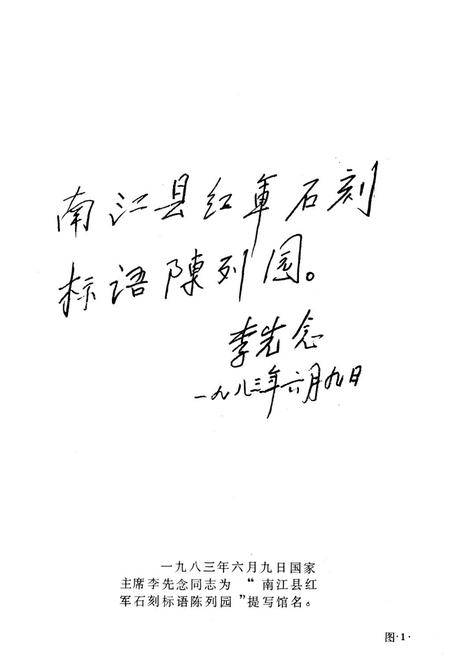 南江县红軍石刻
标语陳列园。
李先念
一九八三年六月九日
一九八三年六月九日国家
主席李先念同志为“南江县红
军石刻标语陈列园”提写馆名。
图·1·